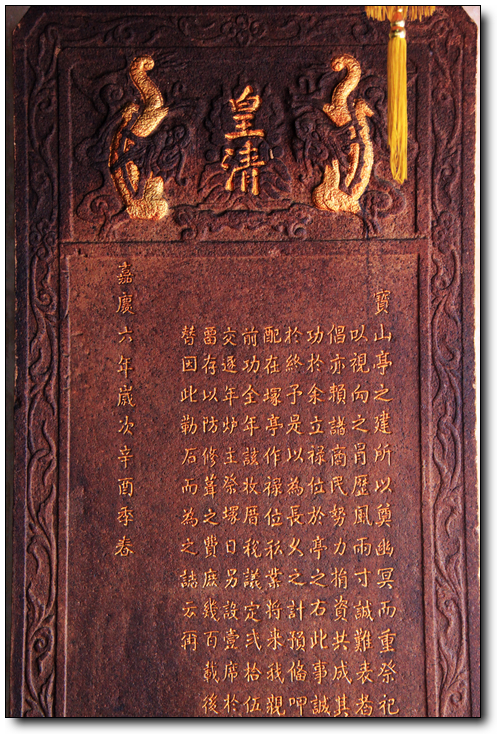 皇清
寶山亭之建所以奠幽冥而重祭祀
以視向之冐歷風雨寸誠難表者
倡亦賴諸商民努力捐資共成其
功於余立禄位於亭之右此事誠
於終予是以為長久之計預俻呷
配在塚亭作禄位玆業將来我覌
前功全年該收厝稅議定弍拾伍
交逐年炉主祭塚日另設壹席於
畱存以防修葺之費庶幾百載後
替因此勒石而為之誌云爾
嘉慶六年歲次辛酉季春